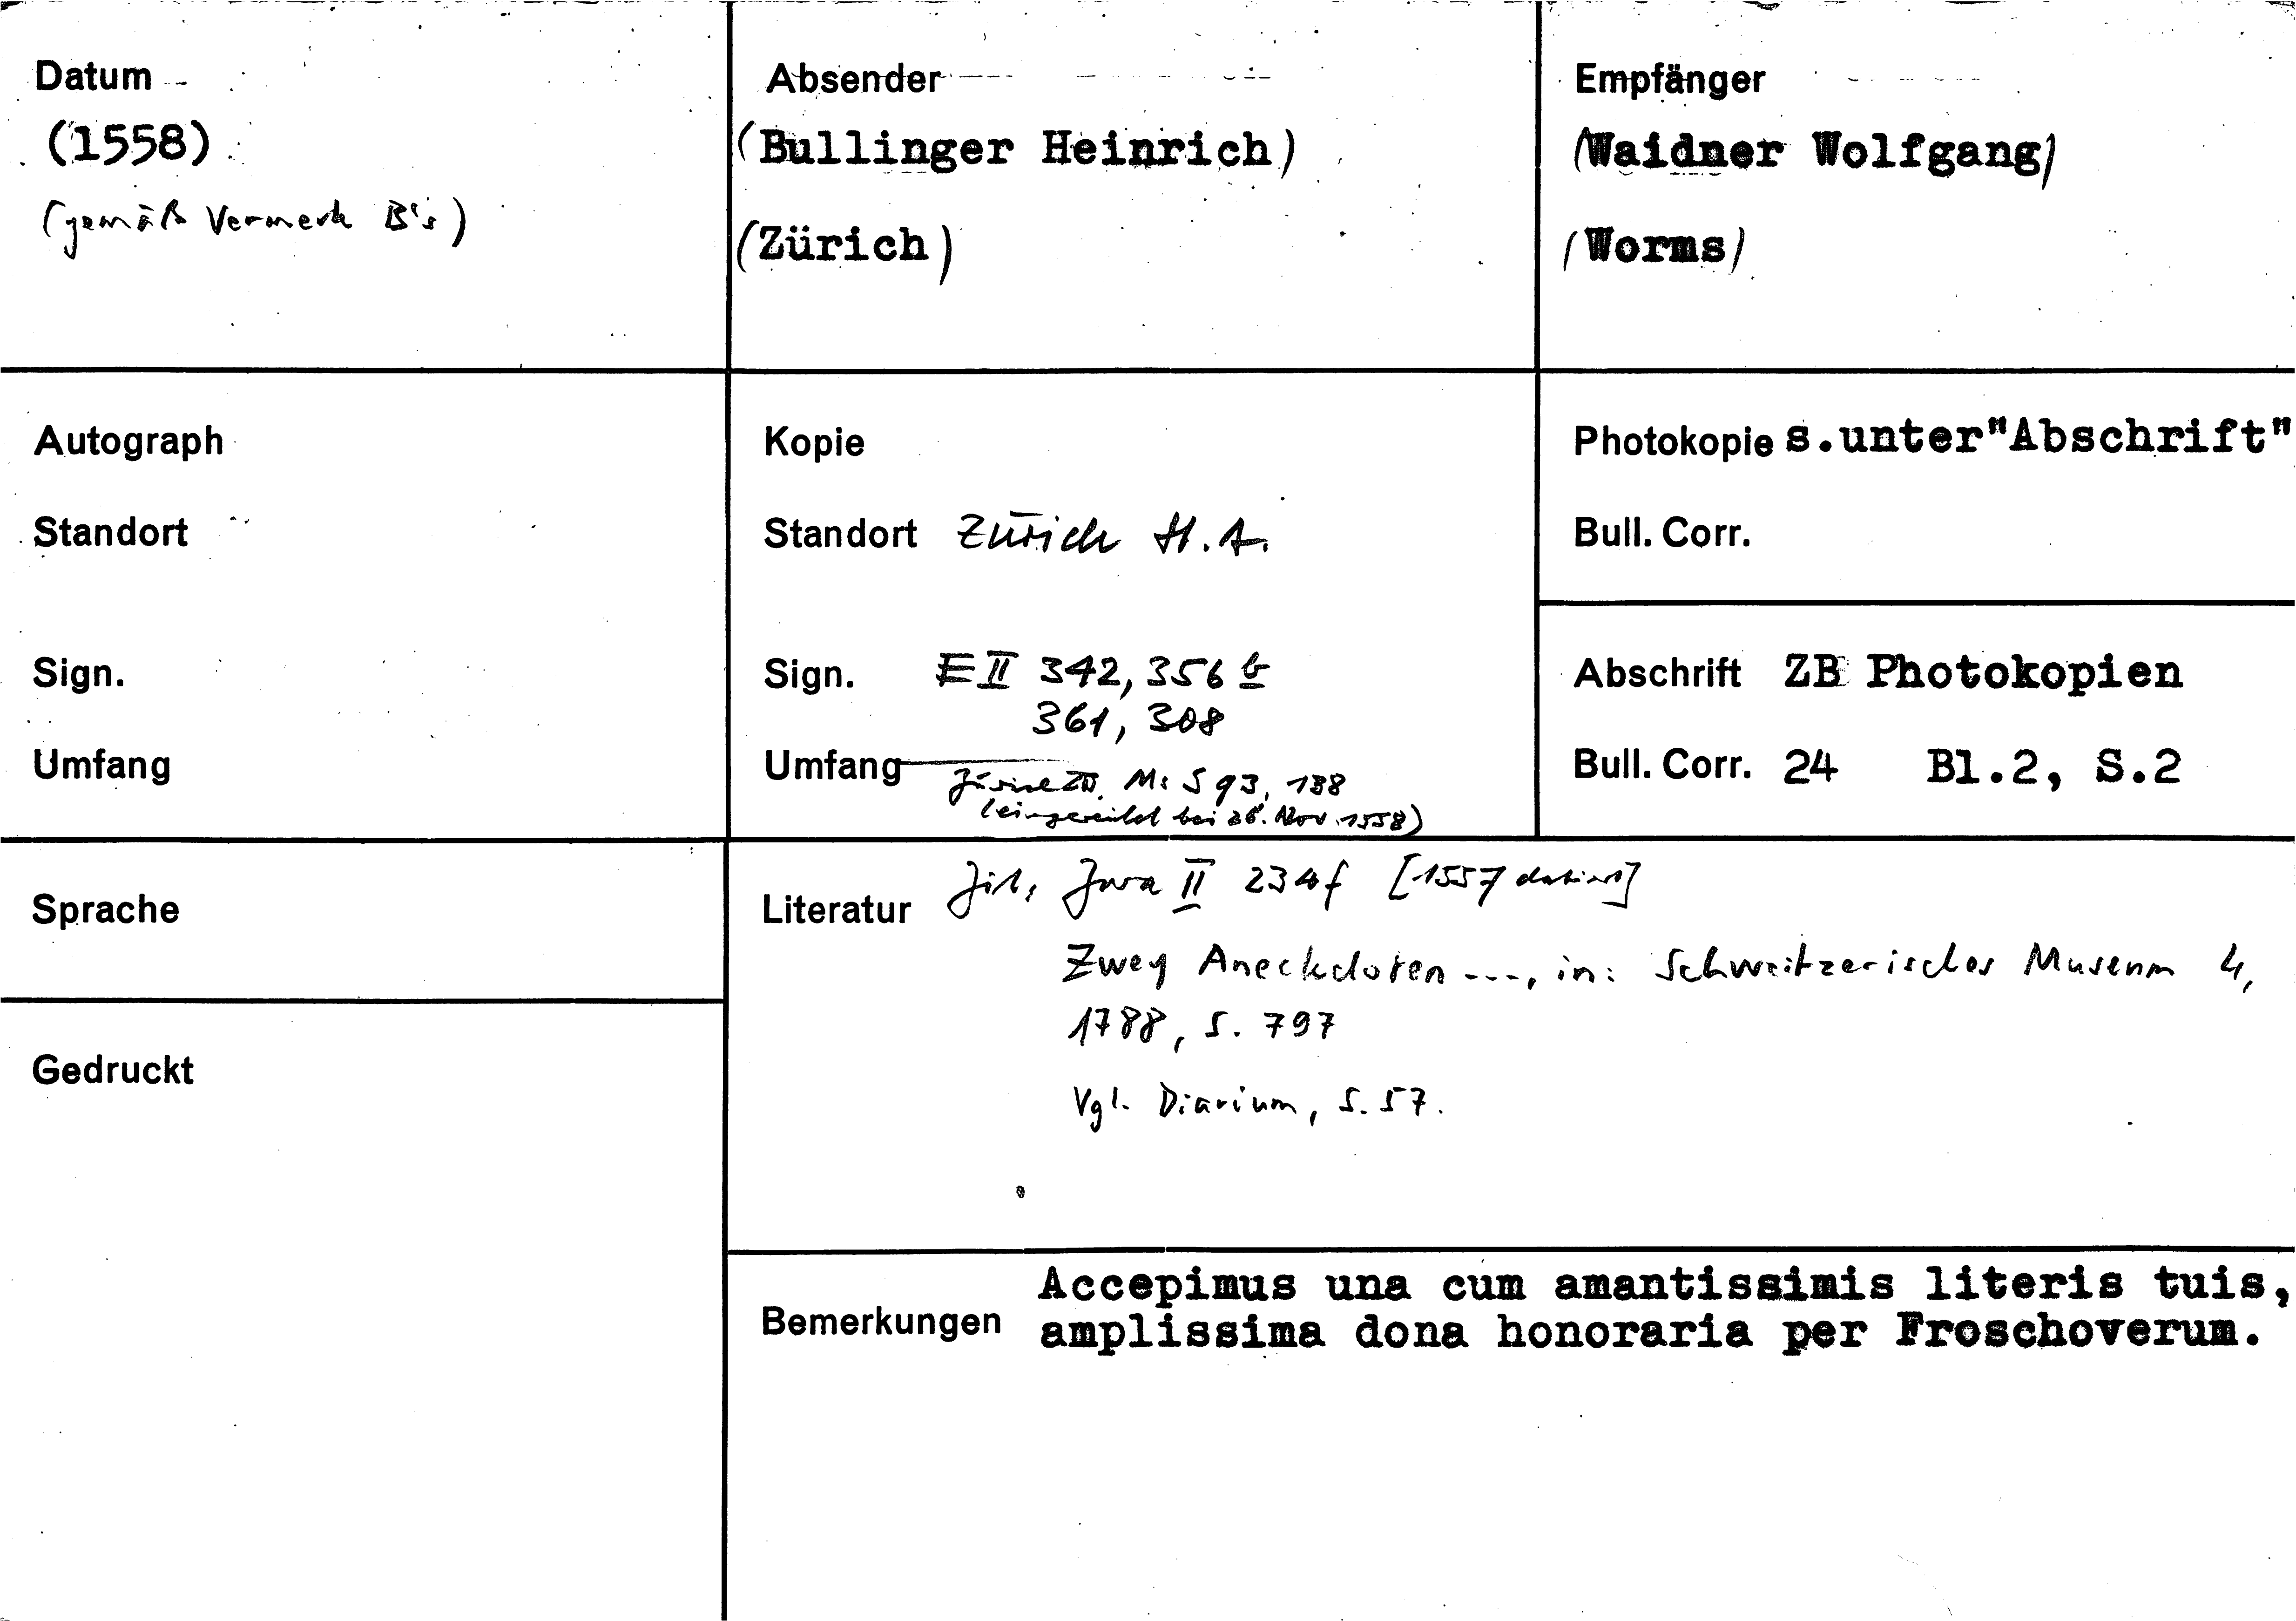 Datum
(1558)
(gemäß Vermerk B's)
Absender
(Bullinger Heinrich)
(Zürich)
Empfänger
(Waidner Wolfgang)
(Worms)
Autograph
Standort
Sign.
Umfang
Kopie
Standort Zürich H.A.
Sign. E II 342, 356 b
361, 308
Umfang
ZB, Ms S 93, 138
(eingereiht bei 28. Nov. 1558)
Photokopie s.unter"Abschrift"
Bull. Corr.
Abschrift ZB Photokopien
Bull. Corr. 24 Bl.2, S.2
Sprache
Gedruckt
Literatur II 234f [1557 datiert]
Zwey Aneckdoten ---, in: Schweitzerisches Museum 4,
1788, S. 797
Vgl. Diarium, S. 57.
Bemerkungen Accepimus una cum amantissimis literis tuis,
amplissima dona honoraria per Froschoverum.